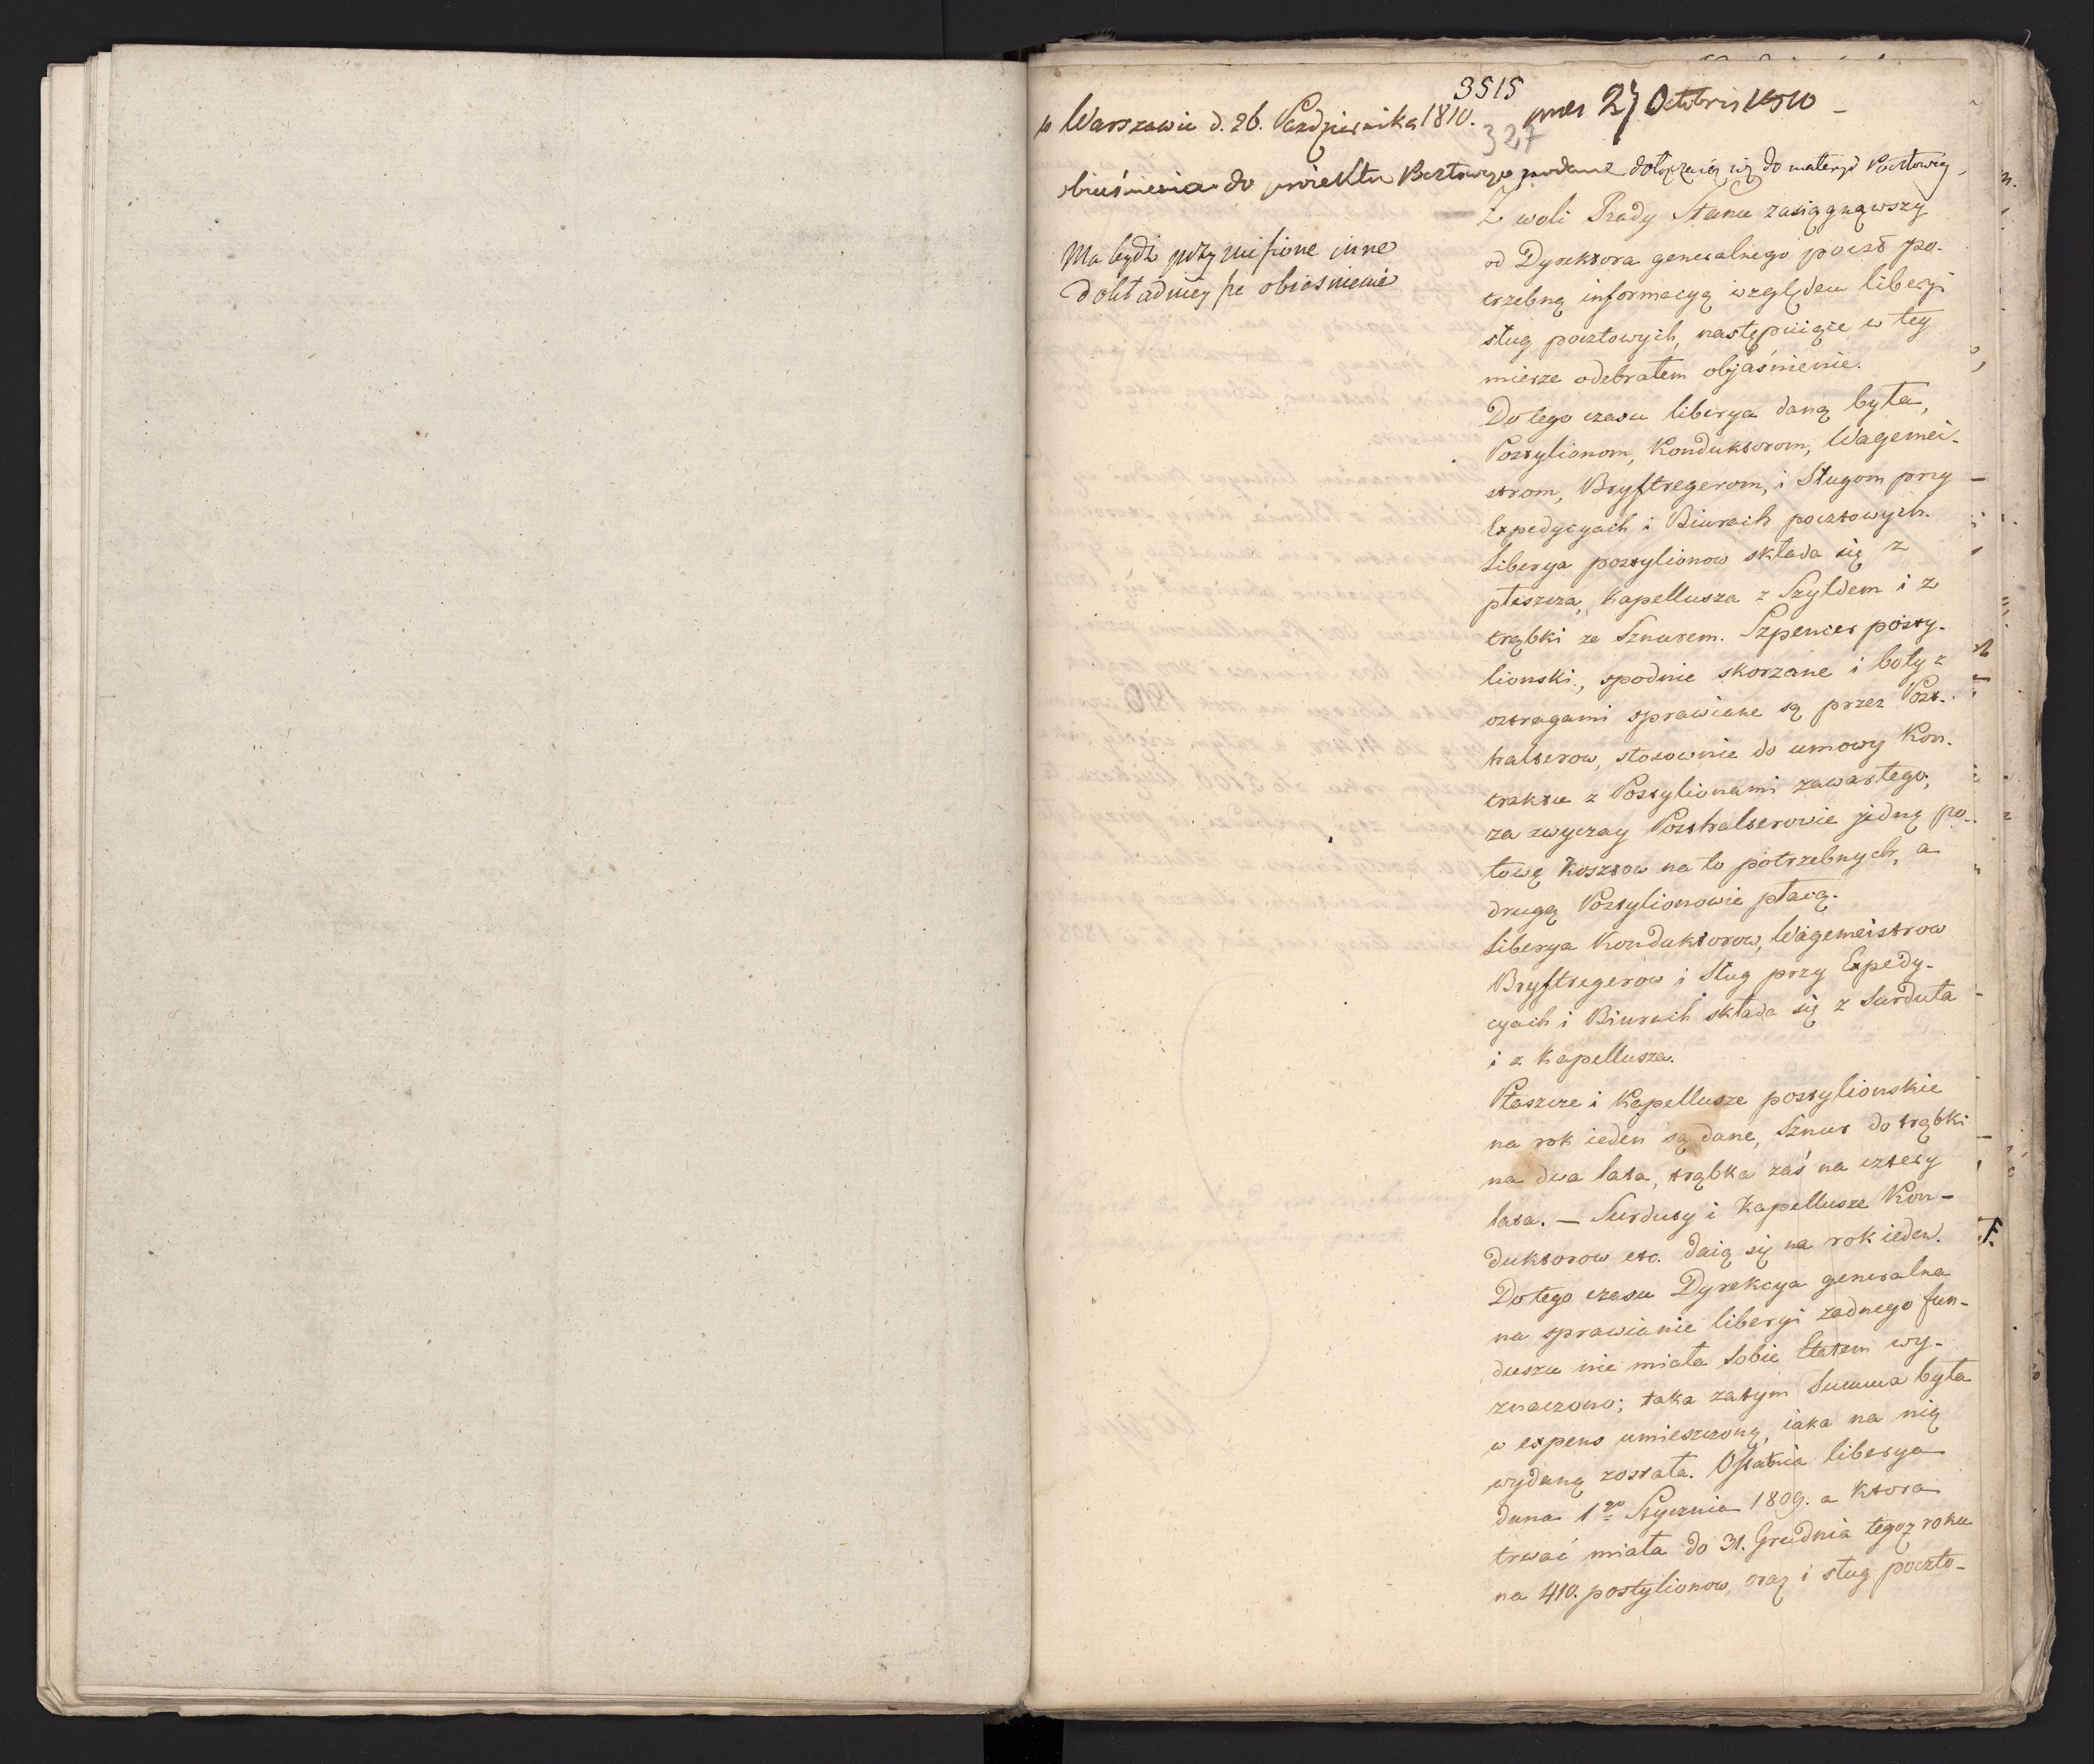 3515
w Warszawie d. 26. Pazdziernika 1810.
pres 27 Octobris 1810 –
327
obiaśnienia do proiektu Pocztowego podane dołączaią się do materyi Pocztowey
Ma bydź przyniesione inne
dokładnieysze obiasnienie
Z woli Rady Stanu zasiągnąwszy
od Dyrektora generalnego poczt po-
trzebną informacyą względem libery
sług pocztowych, następuiące w tey
mierze odebrałem objaśnienie.
Do tego czasu liberya daną była,
Postylionom, Konduktorom, Wagemei-
strom, Bryftregerom, i Sługom przy
Expedycyach i Biurach pocztowych.
Liberya postylionow składa się z
płaszcza, Kapellusza z Szyldem i z
trąbki ze Sznurem. Szpencer posty-
lionski, spodnie skorzane i boty z
ostragami sprawiane są przez Post-
halterow, stosownie do umowy Kon-
traktu z Postylionami zawartego;
za zwyczay Posthalterowie jedną po-
łowę kosztow na to potrzebnych, a
drugą Postylionowie płacą.
Liberya Konduktorow, Wagemeistrow
Bryftregerow i Sług przy Expedy-
cyach i Biurach składa się z Surduta
i z Kapellusza.
Płaszcze i Kapellusze postylionskie
na rok ieden są dane, Sznur do trąbki
na dwa lata, trąbka zaś na cztery
lata. – Surduty i Kapellusze Kon-
duktorow etc. daią się na rok ieden.
Do tego czasu Dyrekcya generalna
na sprawianie liberyi żadnego fun-
duszu nie miała sobie Etatem wy-
znaczono; taka zatym Summa była
w expens umieszczoną, iaka na nią
wydaną została. Ostatnia liberya
dana 1go Stycznia 1809. a ktora
trwać miała do 31. Grudnia tegoż roku
na 410. postylionow, oraz i sług poczto-